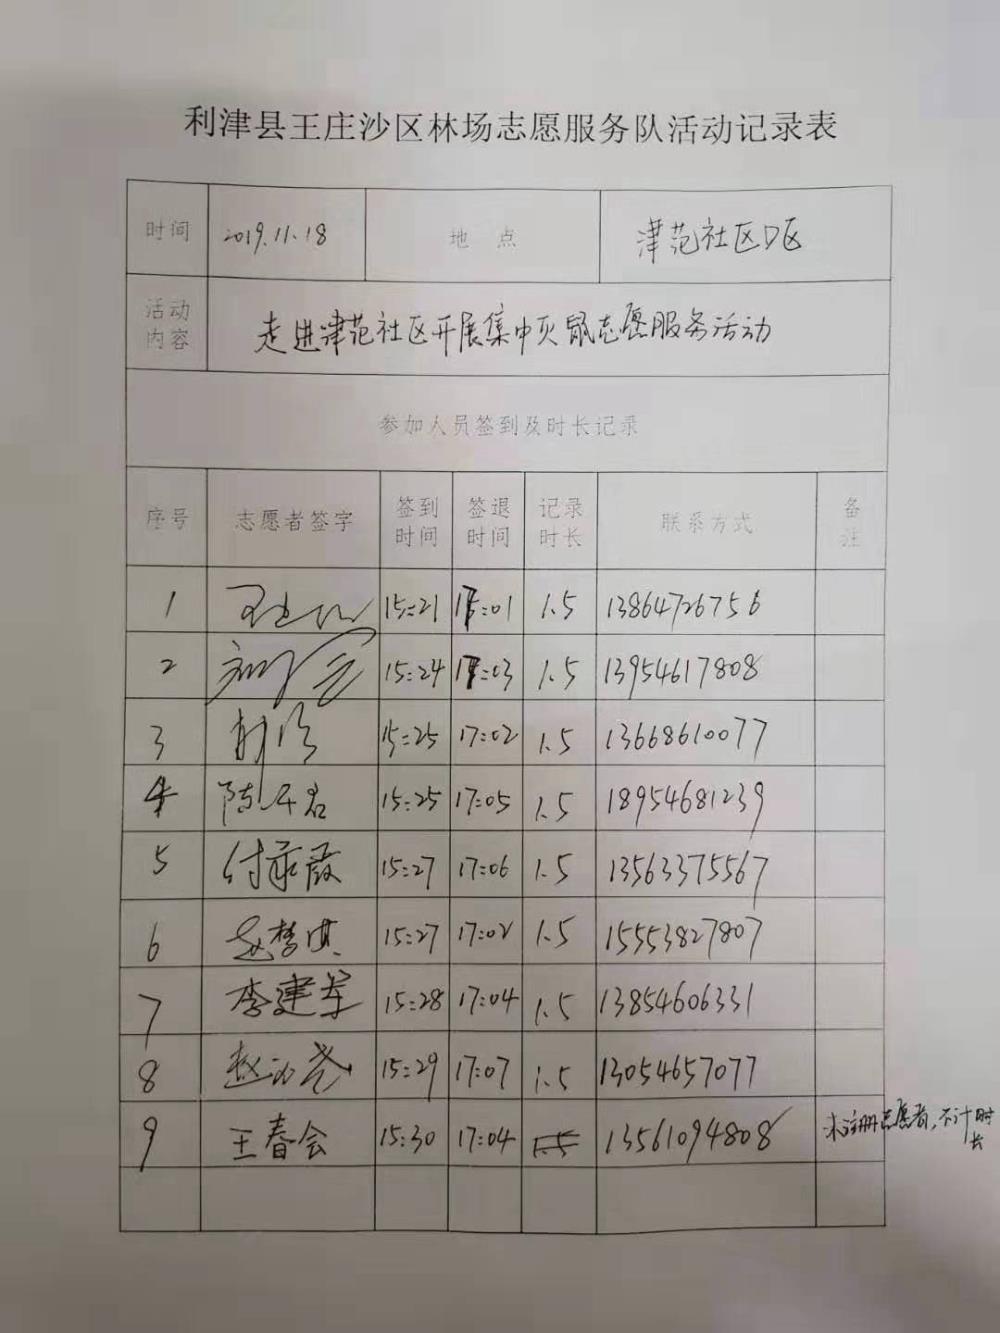 利津县王庄沙区林场志愿服务队活动记录表
时间 2019.11.18 地点 津苑社区D区
活动内容 走进津苑社区开展集中灭鼠志愿服务活动
参加人员签到及时长记录
序号 志愿者签字 签到时间 签退时间 记录时长 联系方式 备注
1 15:21 17:01 1.5 13864726756
2 15:24 17:03 1.5 13954617808
3 15:25 17:02 1.5 13668610077
4 15:25 17:05 1.5 18954681239
5 15:27 17:06 1.5 13563375567
6 赵梦琪 15:27 17:02 1.5 15553827807
7 李建军 15:28 17:04 1.5 13854606331
8 15:29 17:07 1.5 13054657077
9 王春会 15:30 17:04 1.5 13561094808 未注册志愿者，不计时长